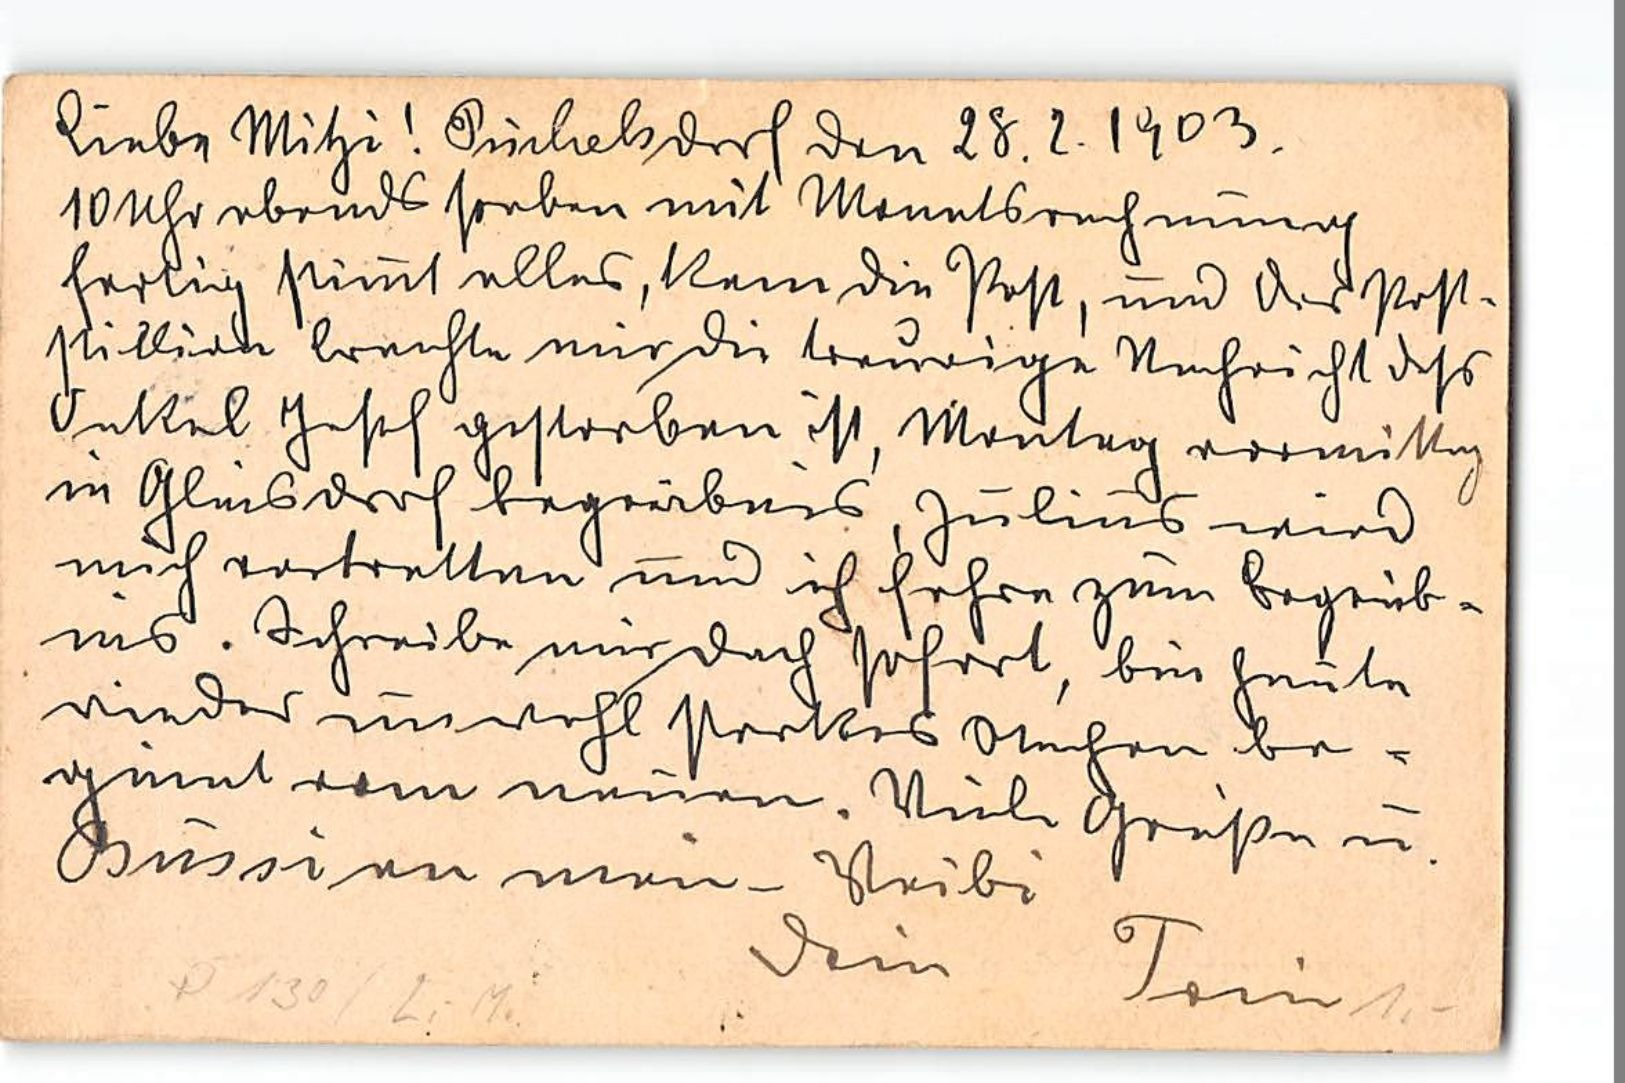 Liebe Mitzi! Püchelsdorf den 28. 2. 1903.
10 Uhr abends soeben mit Monatsrechnung
fertig stim̅t alles, kam die Post, und der Post-
stillion brachte mir die traurige Nachricht dass
Onkel Josef gestorben ist, Montag vormittag
in Gleisdorf begräbnis, Julius wird
mich vertretten und ich fahre zum Begräb-
nis. Schreibe mir doch sofort, bin heute
wieder unwohl starkes Stechen be-
ginnt vom neuen. Viele Grüße u.
Bussi an mein- Weibi
Dein Toni 1.-
P 130/ L. M.